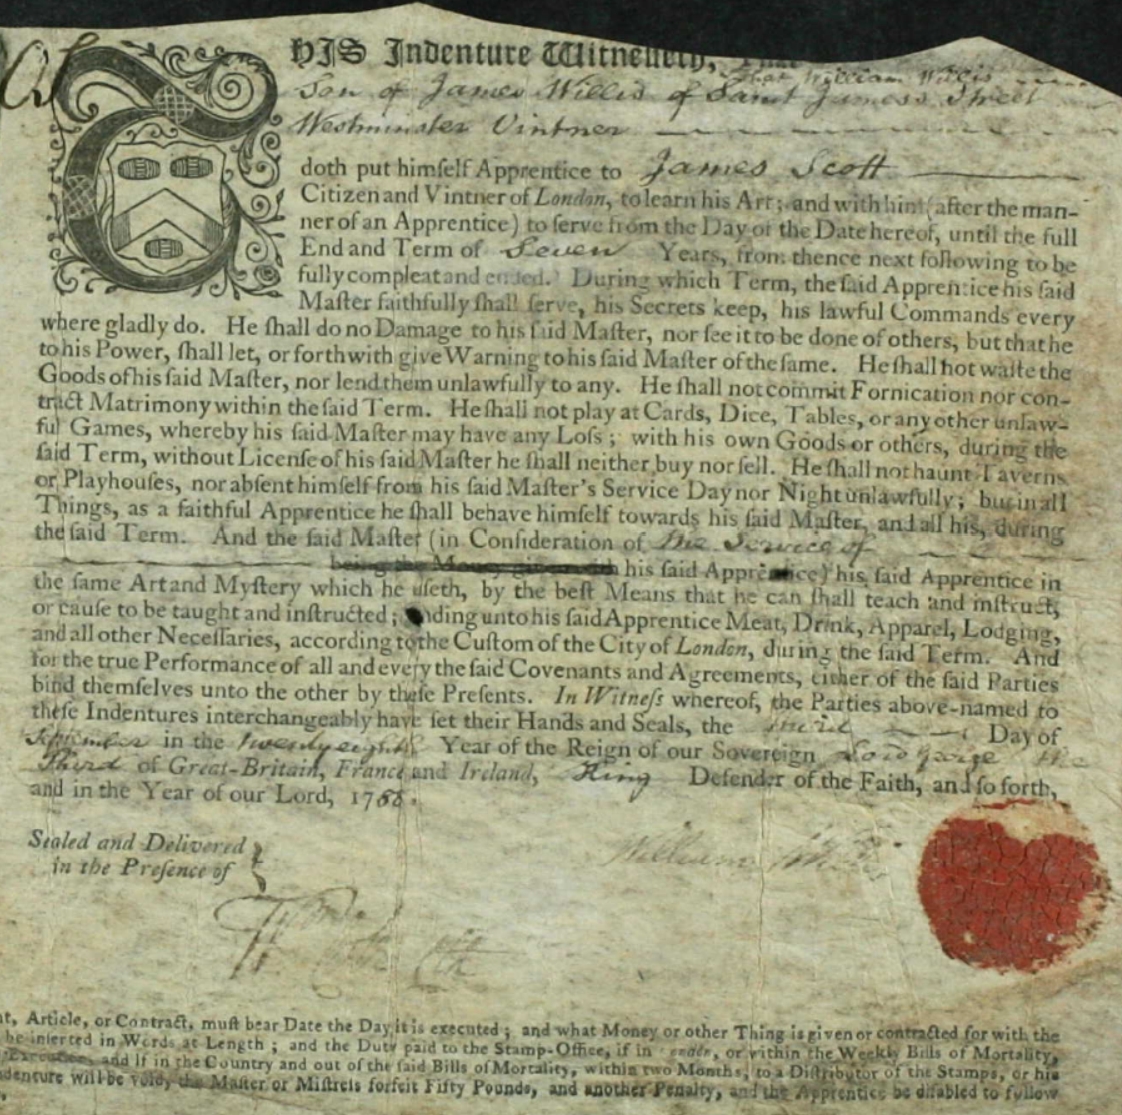 THIS Indenture Witneſſeth, That
that William Willis
Son of James Willis of Saint James's Street
Westminster Vintner
doth put himſelf Apprentice to James Scott
Citizen and Vintner of London, to learn his Art; and with him (after the man-
ner of an Apprentice) to ſerve from the Day of the Date hereof, until the full
End and Term of Seven Years, from thence next following to be
fully compleat and ended. During which Term, the ſaid Apprentice his ſaid
Maſter faithfully ſhall ſerve, his Secrets keep, his lawful Commands every
where gladly do. He ſhall do no Damage to his ſaid Maſter, nor ſee it to be done of others, but that he
to his Power, ſhall let, or forthwith give Warning to his ſaid Maſter of the ſame. He ſhall not waſte the
Goods of his ſaid Maſter, nor lend them unlawfully to any. He ſhall not commit Fornication nor con-
tract Matrimony within the ſaid Term. He ſhall not play at Cards, Dice, Tables, or any other unlaw-
ful Games, whereby his ſaid Maſter may have any Loſs; with his own Goods or others, during the
ſaid Term, without Licenſe of his ſaid Maſter he ſhall neither buy nor ſell. He ſhall not haunt Taverns
or Playhouſes, nor abſent himſelf from his ſaid Maſter's Service Day nor Night unlawfully; but in all
Things, as a faithful Apprentice he ſhall behave himſelf towards his ſaid Maſter, and all his, during
the ſaid Term. And the ſaid Maſter (in Conſideration of the Service of
being the Money given with his ſaid Apprentice) his ſaid Apprentice in
the ſame Art and Myſtery which he uſeth, by the beſt Means that he can ſhall teach and inſtruct,
or cauſe to be taught and inſtructed; ding unto his ſaid Apprentice Meat, Drink, Apparel, Lodging,
and all other Neceſſaries, according to the Cuſtom of the City of London, during the ſaid Term. And
for the true Performance of all and every the ſaid Covenants and Agreements, either of the ſaid Parties
bind themſelves unto the other by theſe Preſents. In Witneſs whereof, the Parties above-named to
theſe Indentures interchangeably have ſet their Hands and Seals, the third Day of
September in the twenty eighth Year of the Reign of our Sovereign Lord George the
Third of Great-Britain, France and Ireland, King Defender of the Faith, and ſo forth,
and in the Year of our Lord, 1788.
Sealed and Delivered
in the Preſence of
William Willis
nt, Article, or Contract, muſt bear Date the Day it is executed; and what Money or other Thing is given or contracted for with the
be inſerted in Words at Length; and the Duty paid to the Stamp-Office, if in or within the Weekly Bills of Mortality,
Execution, and if in the Country and out of the ſaid Bills of Mortality, within two Months, to a Diſtributor of the Stamps, or his
ndenture will be void, the Maſter or Miſtreſs forfeit Fifty Pounds, and another Penalty, and the Apprentice be diſabled to follow